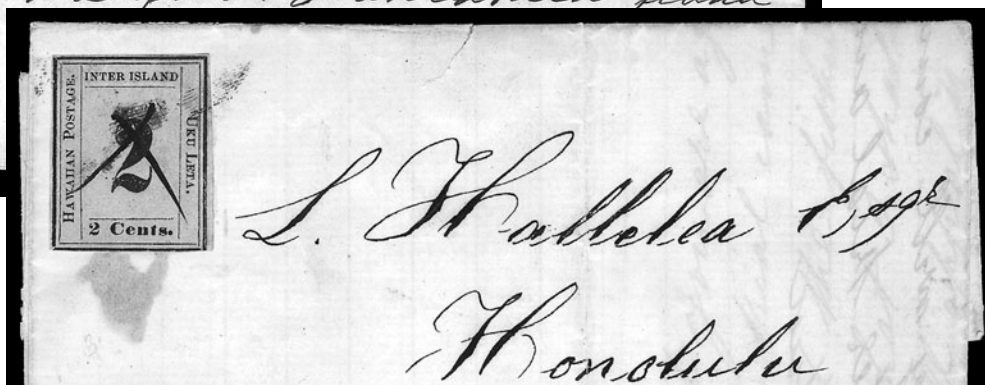 INTER ISLAND
HAWAIIAN POSTAGE.
2
UKU LETA.
2 Cents.
L. Hallelea Esqr
Honolulu